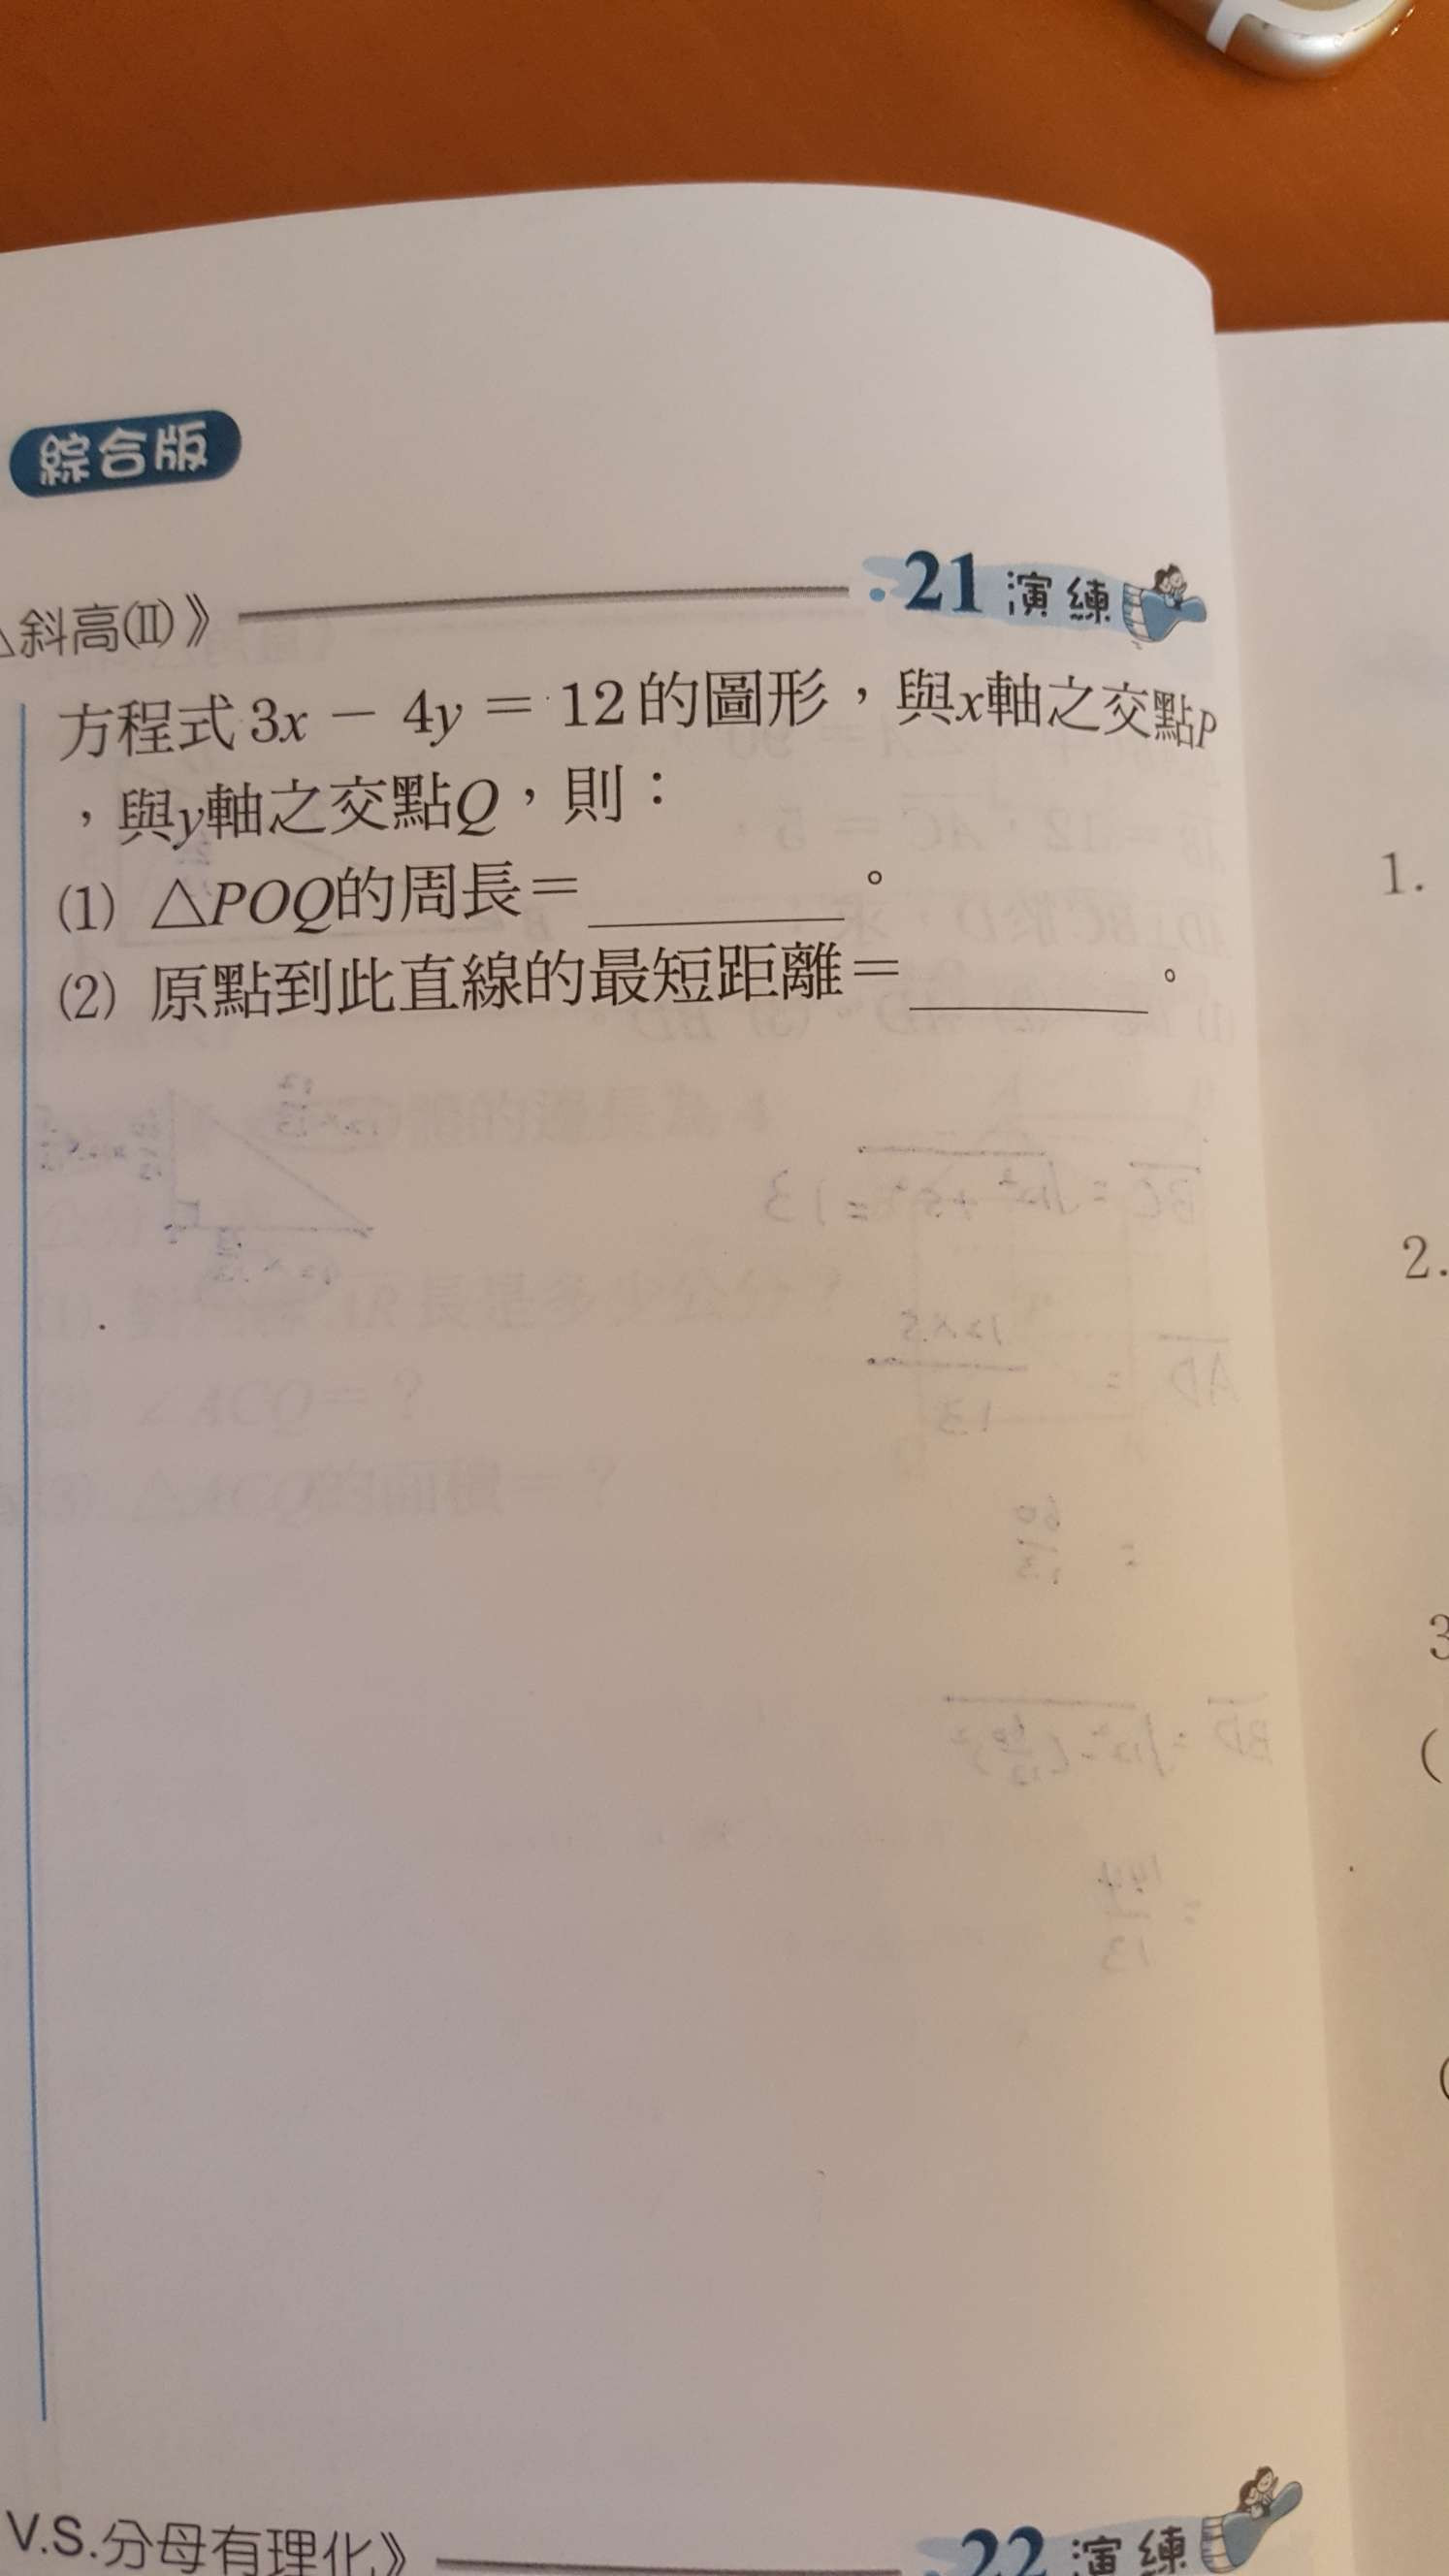 綜合版
斜高(II)》
21 演練
方程式3x － 4y ＝ 12的圖形，與x軸之交點P
，與y軸之交點Q，則：
(1) △POQ的周長＝________。
(2) 原點到此直線的最短距離＝________。
1.
2.
3
(
(
V.S.分母有理化》
22 演練